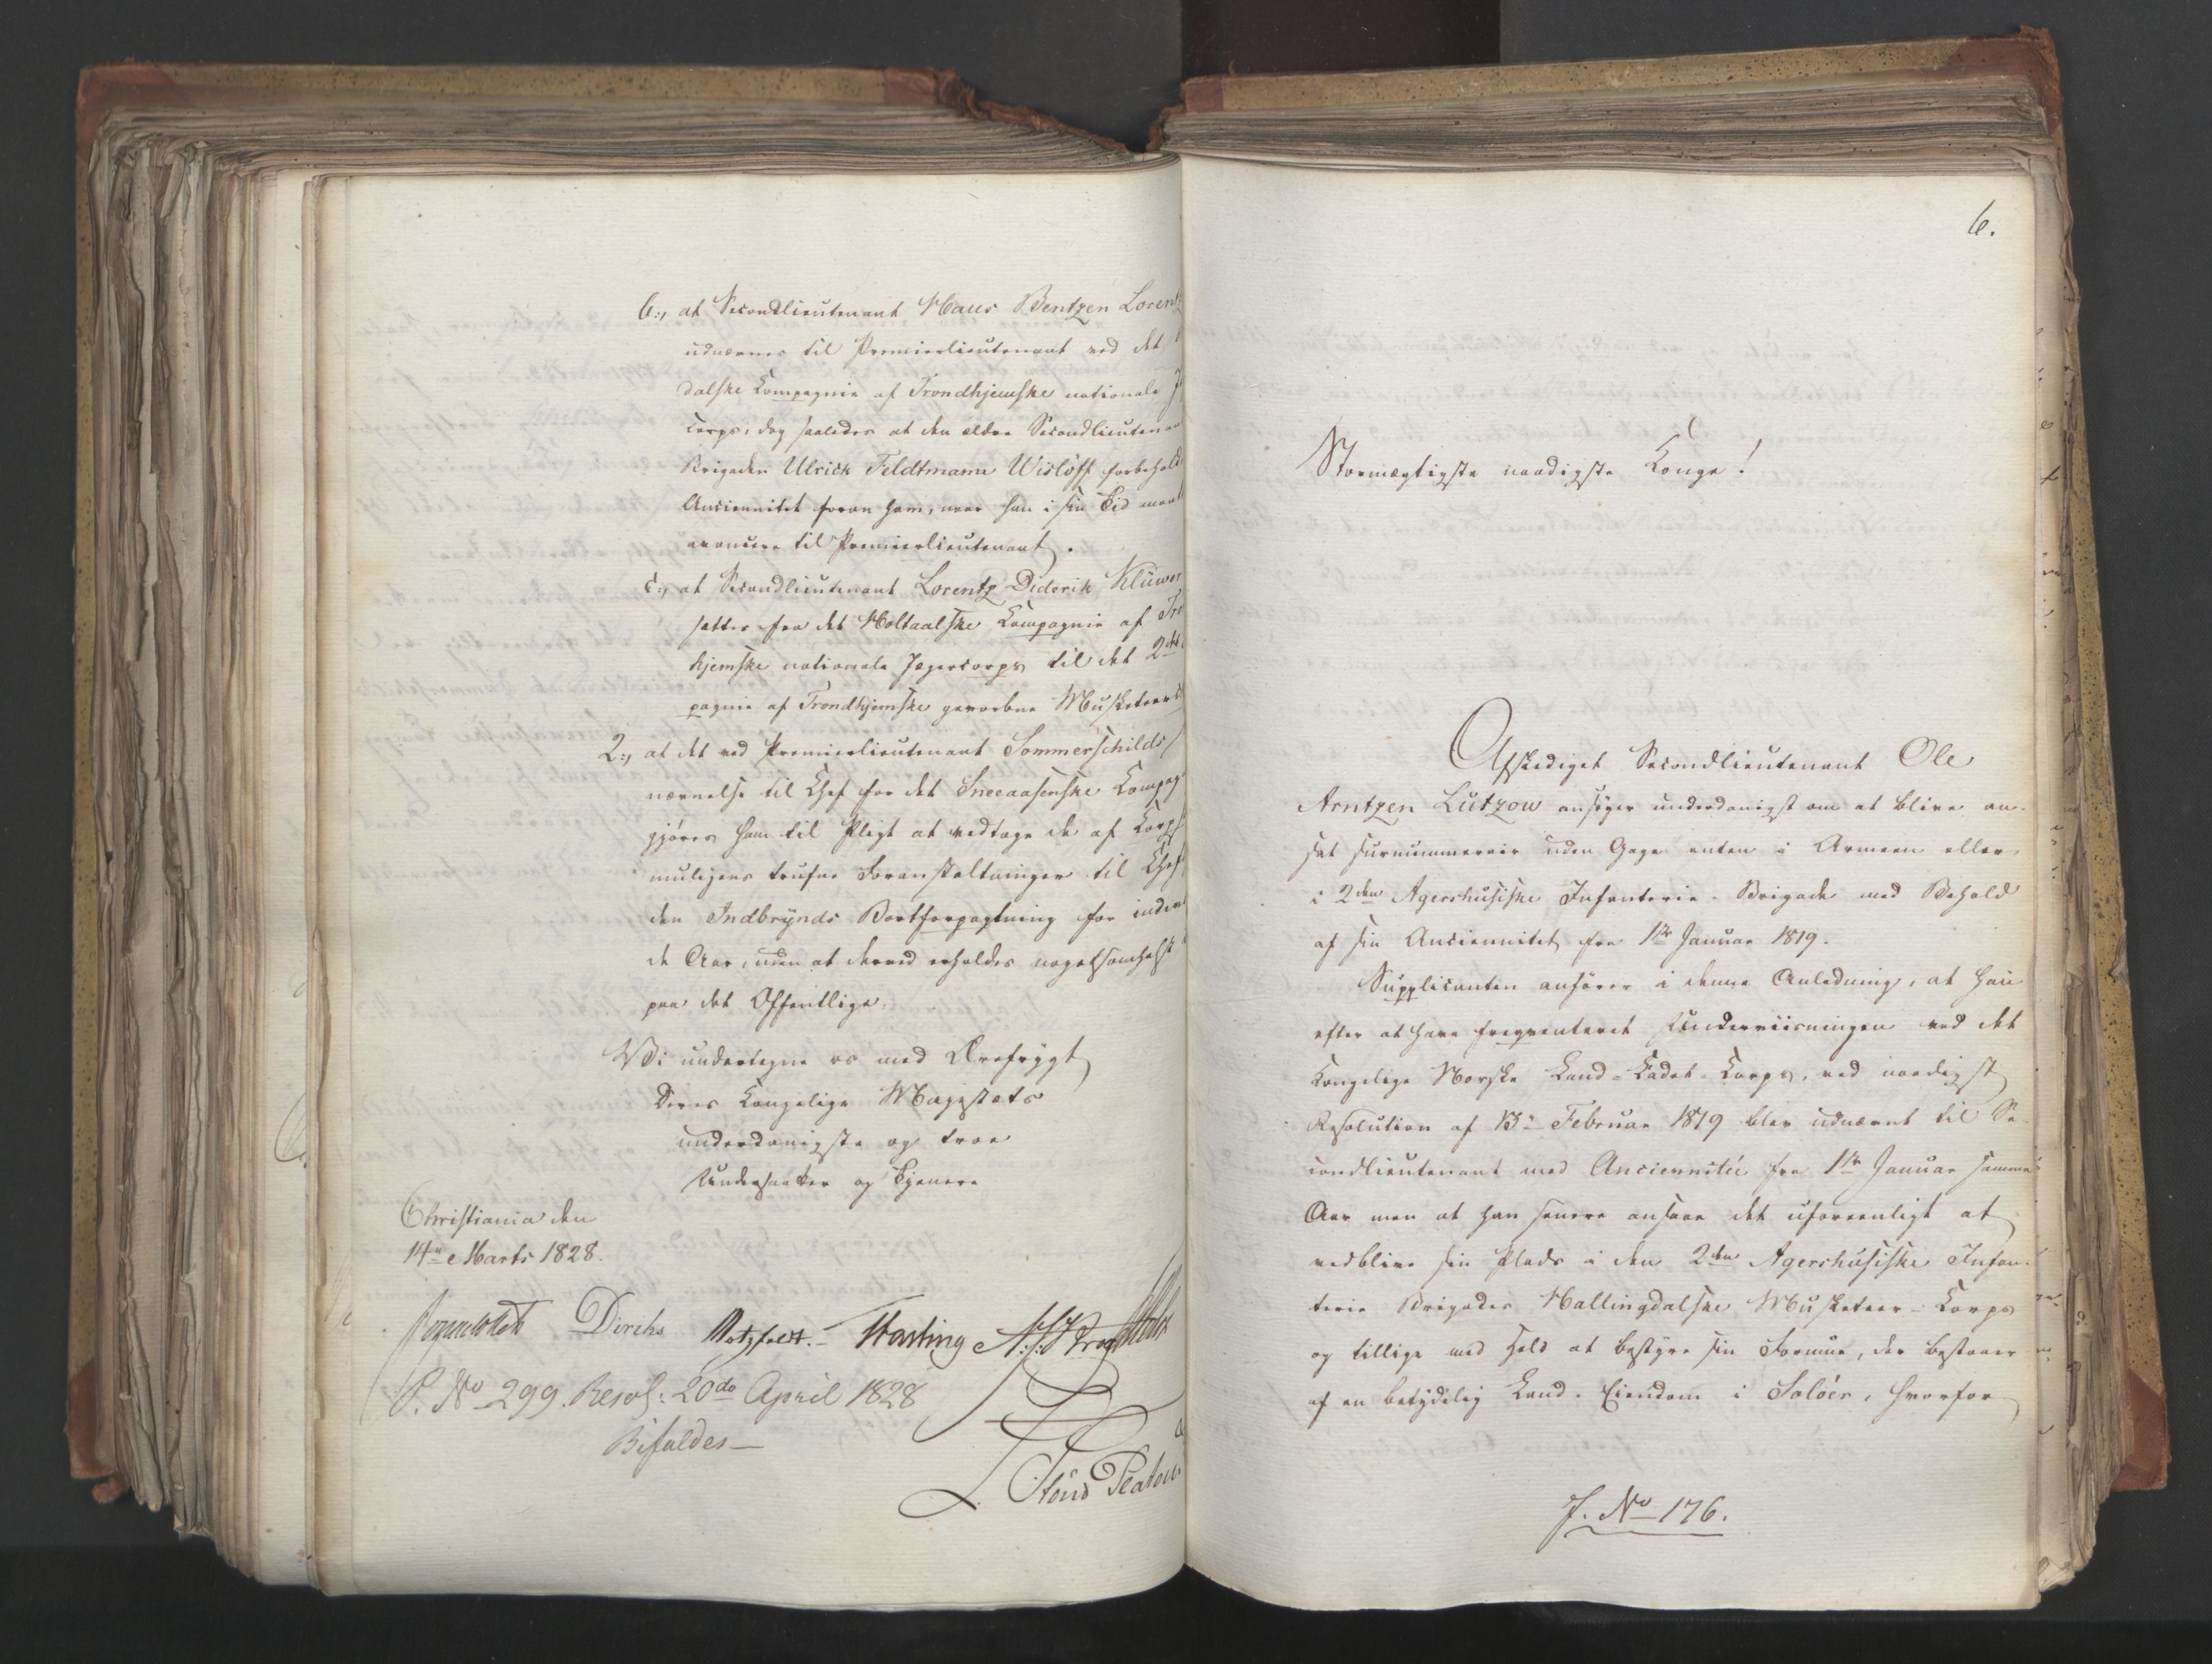 b:, at Secondlieutenant Hans Bentzen Lorent
udnævnes til Premierlieutenant ved det
dalske Compagnie af Trondhjemske nationale
Corps, dog saaledes at den ældre Secondlieutenan
Brigaden Ulrich Feldtmann Wislöff forbehold
Anciennitet foran ham, naar han i sin Tid maat
avancere til Premierlieutenant.
c:, at Secondlieutenant Lorentz Diderik Klüwer
sættes fra det Holtaalske Compagnie af Tro
hjemske nationale Jægercorps til det 2det
pagnie af Trondhjemske gevorbne Musketeer
2:, at det ved Premierlieutenant Sommerschilds
nævnelse til Chef for det Sneeaasenske Compag
gjøres ham til Pligt at vedtage de af Corps
muligens trufne Foranstaltninger til Chef
den Indbrynds Bortforpagtning for inde
de Aar, uden at derved erholdes nogetsomhelst
paa det Offentlige.
Vi undertegne os med Ærefrygt
Deres Kongelige Majestæts
underdanigste og troe
Undersaatter og Tjenere
Christiania den
14de Marts 1828.
Diriks Motzfeldt. Fasting Krog
P. No 299. Resol: 20de April 1828
Bifaldes
6.
Stormægtigste naadigste Konge!
Afskediget Secondlieutenant Ole
Arntzen Lützow ansøger underdanigst om at blive an-
sat surnummerair uden Gage enten i Armeen eller
i 2den Agershusiske Infanterie-Brigade med Behold
af sin Anciennitet fra 1ste Januar 1819.
Supplicanten anfører i denne Anledning, at han
efter at have freqventeret Underviisningen ved det
Kongelige Norske Land-Cadet-Corps, ved naadigst
Resolution af 13de Februar 1819 blev udnævnt til Se-
condlieutenant med Anciennitet fra 1ste Januar samme
Aar men at han senere ansaae det uforeenligt at
vedblive sin Plads i den 2den Agershusiske Infan-
terie Brigades Hallingdalske Musketeer-Corps
og tillige med Held at bestyre sin Formue, der bestaaer
af en betydelig Land-Eiendom i Soløer, hvorfor
J. No 176.